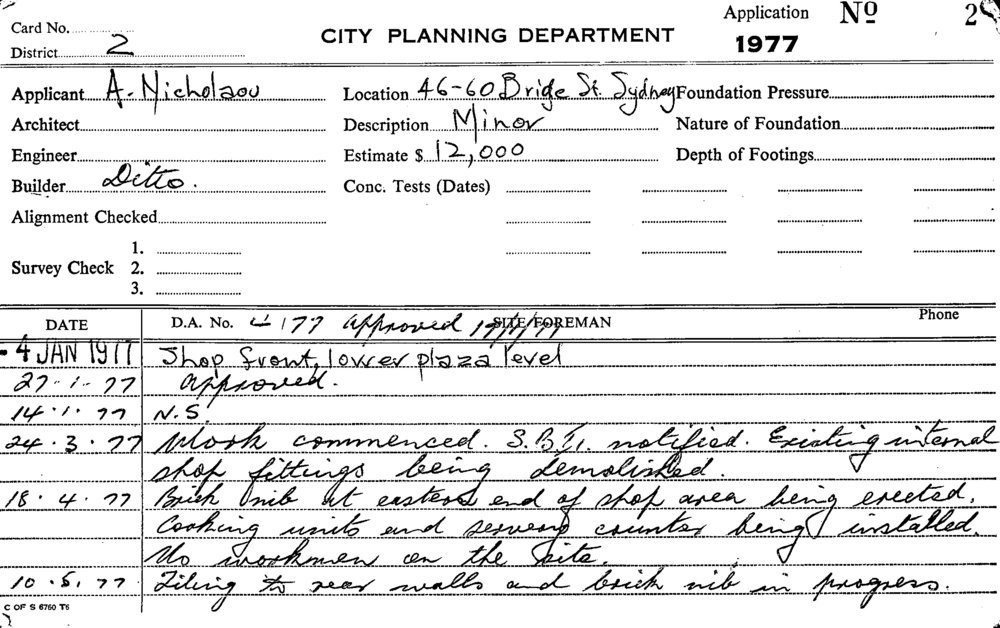 Card No.
CITY PLANNING DEPARTMENT
Application No 2
1977
District 2
Applicant A. Nicholaou
Location 46-60 Brige St. Sydney
Foundation Pressure
Architect
Description Minor
Nature of Foundation
Engineer
Estimate $ 12,000
Depth of Footings
Builder Ditto.
Conc. Tests (Dates)
Alignment Checked
1.
Survey Check 2.
3.
DATE D.A. No. 4177 approved SITE/FOREMAN Phone
- 4 JAN 1977 Shop front, lower plaza level
27.1.77 approved.
14.1.77 N.S.
24.3.77 Work commenced. notified. Existing internal
shop fittings being demolished.
18.4.77 Brick nib at eastern end of shop area being erected.
Cooking units and servery counter being installed.
No workmen on the site.
10.5.77 Tiling to rear walls and brick nib in progress.
C OF S 6760 T6